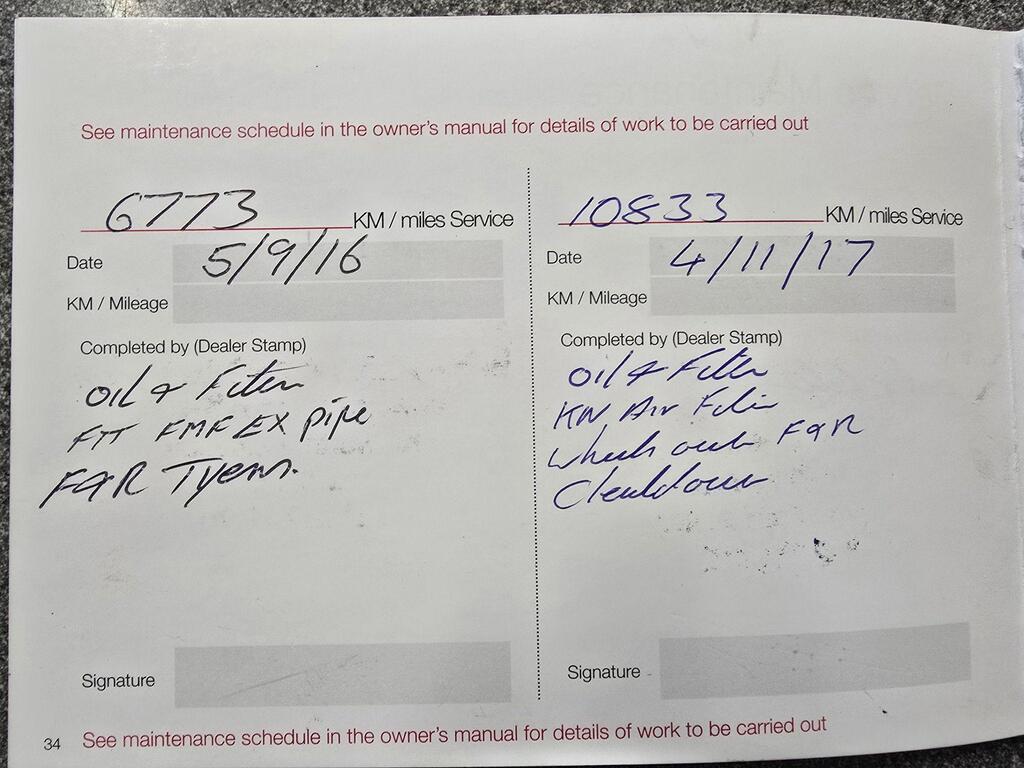 See maintenance schedule in the owner's manual for details of work to be carried out
6773 KM / miles Service
Date 5/9/16
KM / Mileage
Completed by (Dealer Stamp)
Oil & Filter
FIT FMF EX pipe
F&R Tyers.
Signature
10833 KM / miles Service
Date 4/11/17
KM / Mileage
Completed by (Dealer Stamp)
Oil & Filter
KN Air Filter
Wheels out F&R
Signature
34 See maintenance schedule in the owner's manual for details of work to be carried out